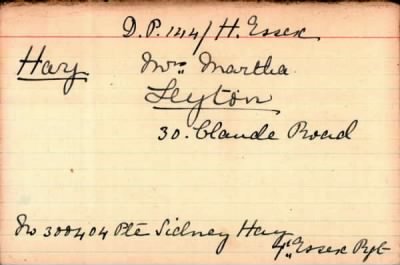 D.P. 144/H. Essex
Hay Mrs Martha
Leyton
30. Claude Road
No 300404 Pte Sidney Hay
4th Essex Rgt